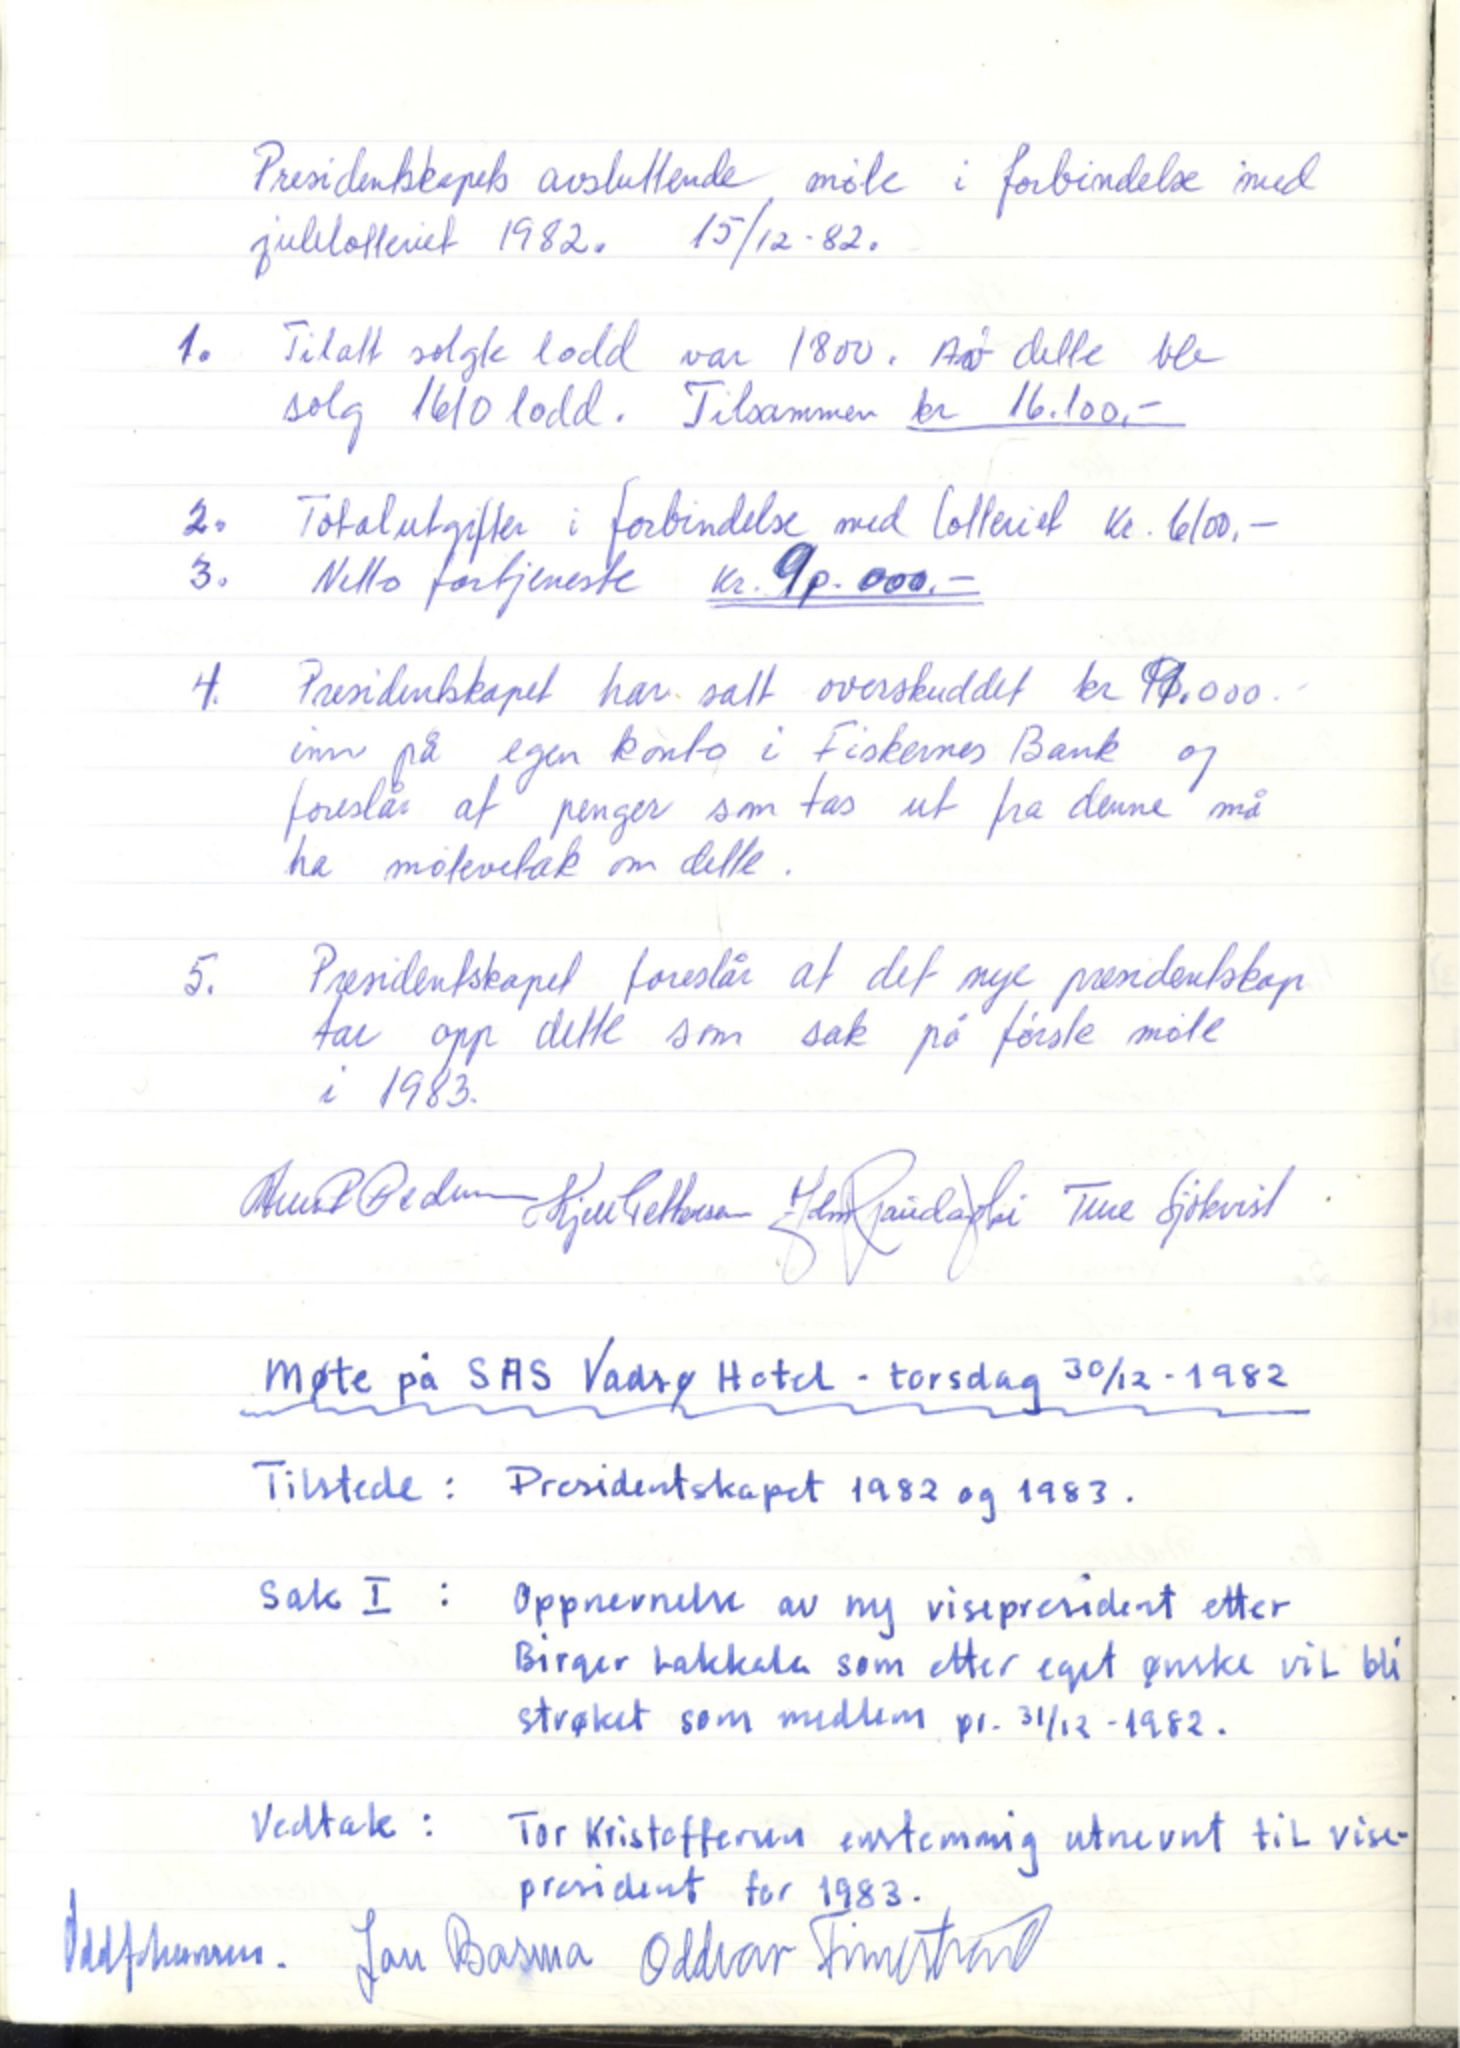 Presidentskapets avsluttende møte i forbindelse med
julelotteriet 1982. 15/12-82.
1. Tilatt solgte lodd var 1800. Av dette ble
solg 1610 lodd. Tilsammen kr 16.100,-
2. Totalutgifter i forbindelse med lotteriet kr. 6100,-
3. Netto fortjeneste kr. 000.-
4. Presidentskapet har satt overskuddet kr 000.-
inn på egen konto i Fiskernes Bank og
foreslår at penger som tas ut fra denne må
ha møtevetak om dette.
5. Presidentskapet foreslår at det nye presidentskap
tar opp dette som sak på første møte
i 1983.
Kjell Pettersen John Tune Sjökvist
Møte på SAS Vadsø Hotel - torsdag 30/12-1982
Tilstede : Presidentskapet 1982 og 1983.
Sak I : Oppnevnelse av ny visepresident etter
Birger Lakkala som etter eget ønske vil bli
strøket som medlem pr. 31/12-1982.
Vedtak : Tor Kristoffersen enstemmig utnevnt til vise-
president for 1983.
Odd Johansen. Jan Basma Oddvar Finnestrand